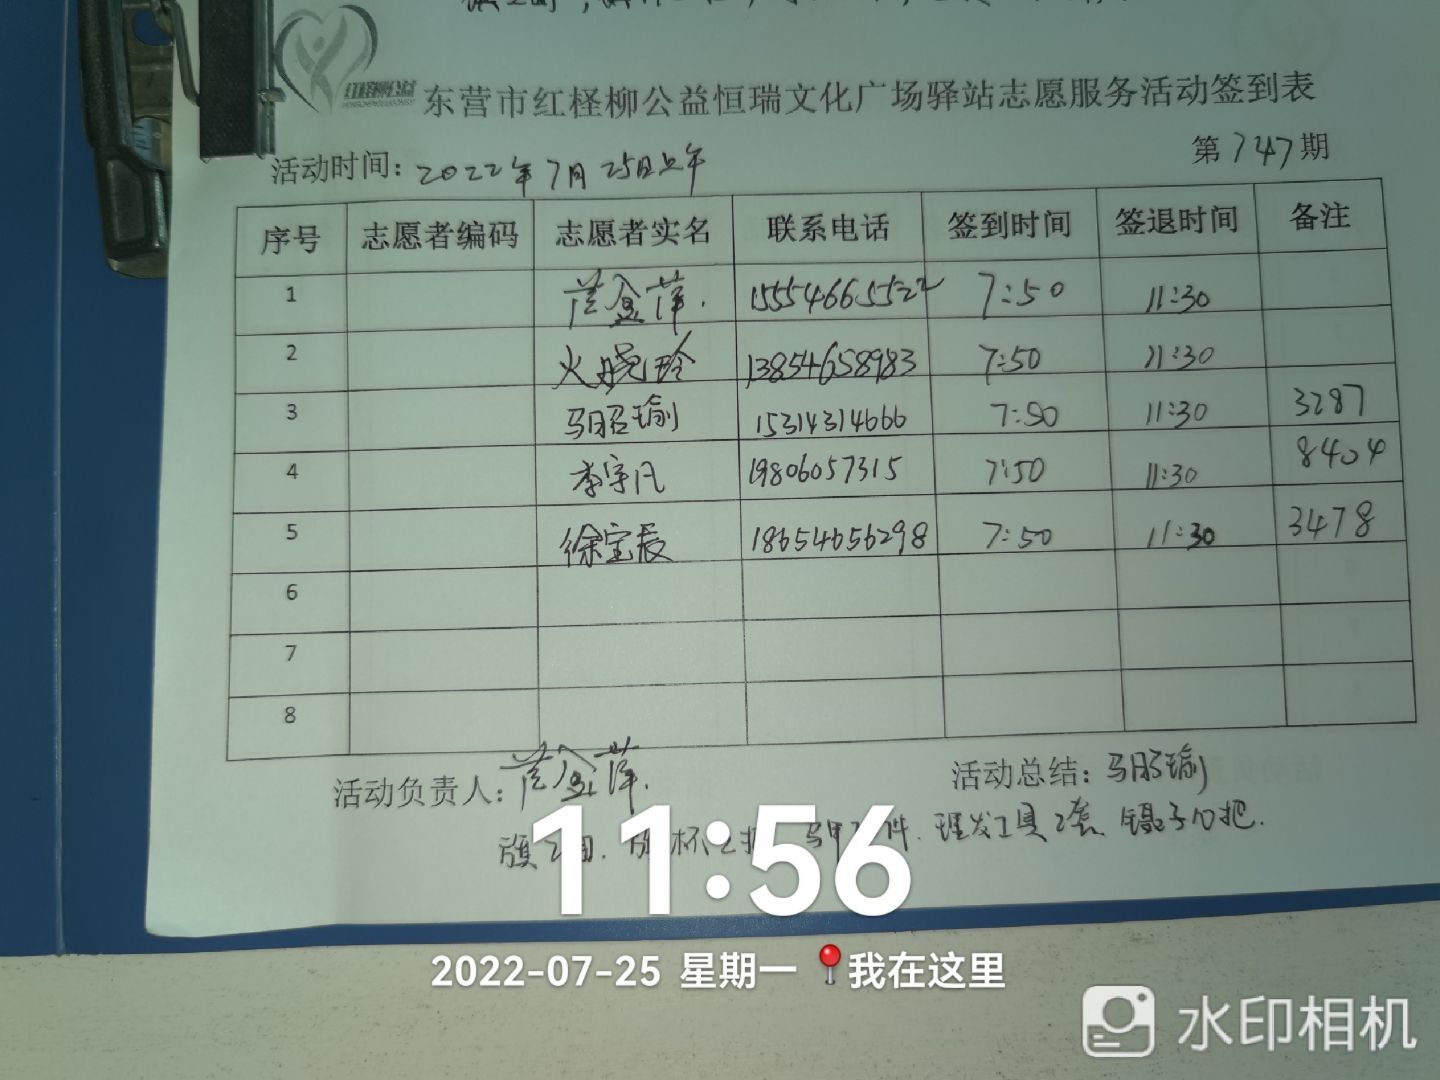 红柽柳公益
东营市红柽柳公益恒瑞文化广场驿站志愿服务活动签到表
活动时间: 2022年7月25日上午 第747期
序号 志愿者编码 志愿者实名 联系电话 签到时间 签退时间 备注
1 15554665522 7:50 11:30
2 火晓玲 13854658983 7:50 11:30
3 马昭瑜 15314314666 7:50 11:30 3287
4 李宇凡 19806057315 7:50 11:30 8404
5 徐宝辰 18654656298 7:50 11:30 3478
6
7
8
活动负责人: 活动总结: 马昭瑜
旗 件. 理发工具2套、镊子10把.
11:56
2022-07-25 星期一 我在这里
水印相机